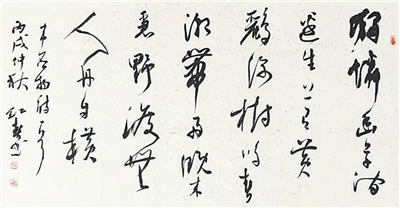 独怜幽草涧
边生上有黄
鹂深树鸣春
潮带雨晚来
急野渡无
人舟自横
韦应物诗
丙戌仲秋